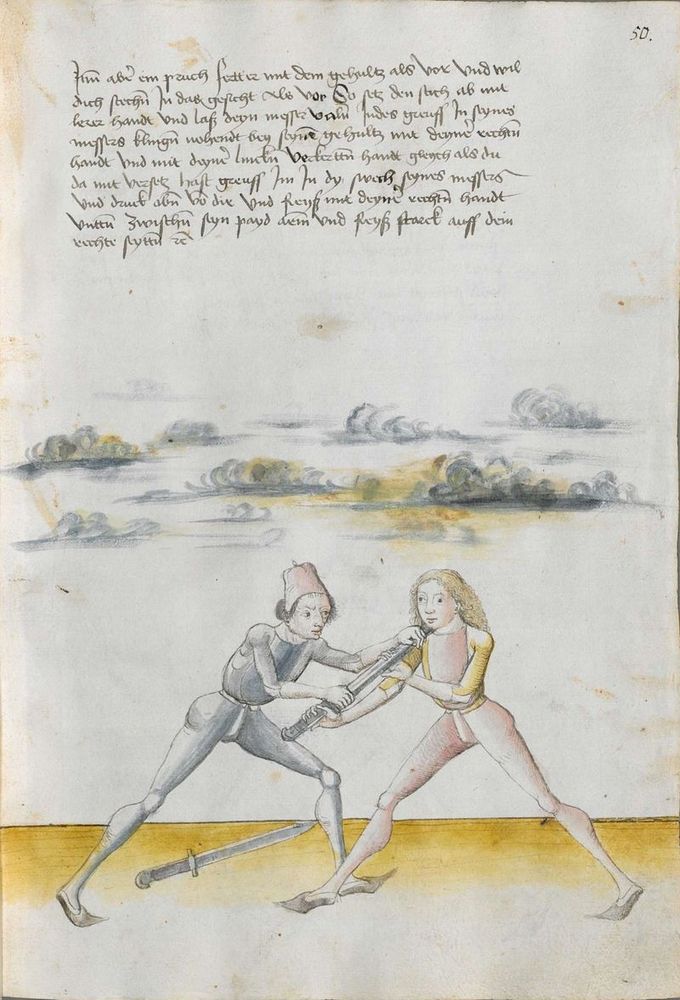 50.
Itm̃ aber ein pruch fert er mit dem gehultz als vor vnd wil
dich stechñ In das gesicht Als vor So setz den stich ab mit
lerer handt vnd laß deyn messer valñ Indes greiff In seynes
messers klingñ nehendt bey seynẽ gehultz mit deynẽ rechtñ
handt vnd mit deynẽ linckñ verkertñ handt gleych als du
da mit versetz hast greiff Im In dy swech seynes messers
vnd druck abñ vō dir vnd Reyß mit deynẽ rechtñ handt
vnttñ zwischñ seyn payd arm vnd Reyß starck auff dein
rechte seyttñ